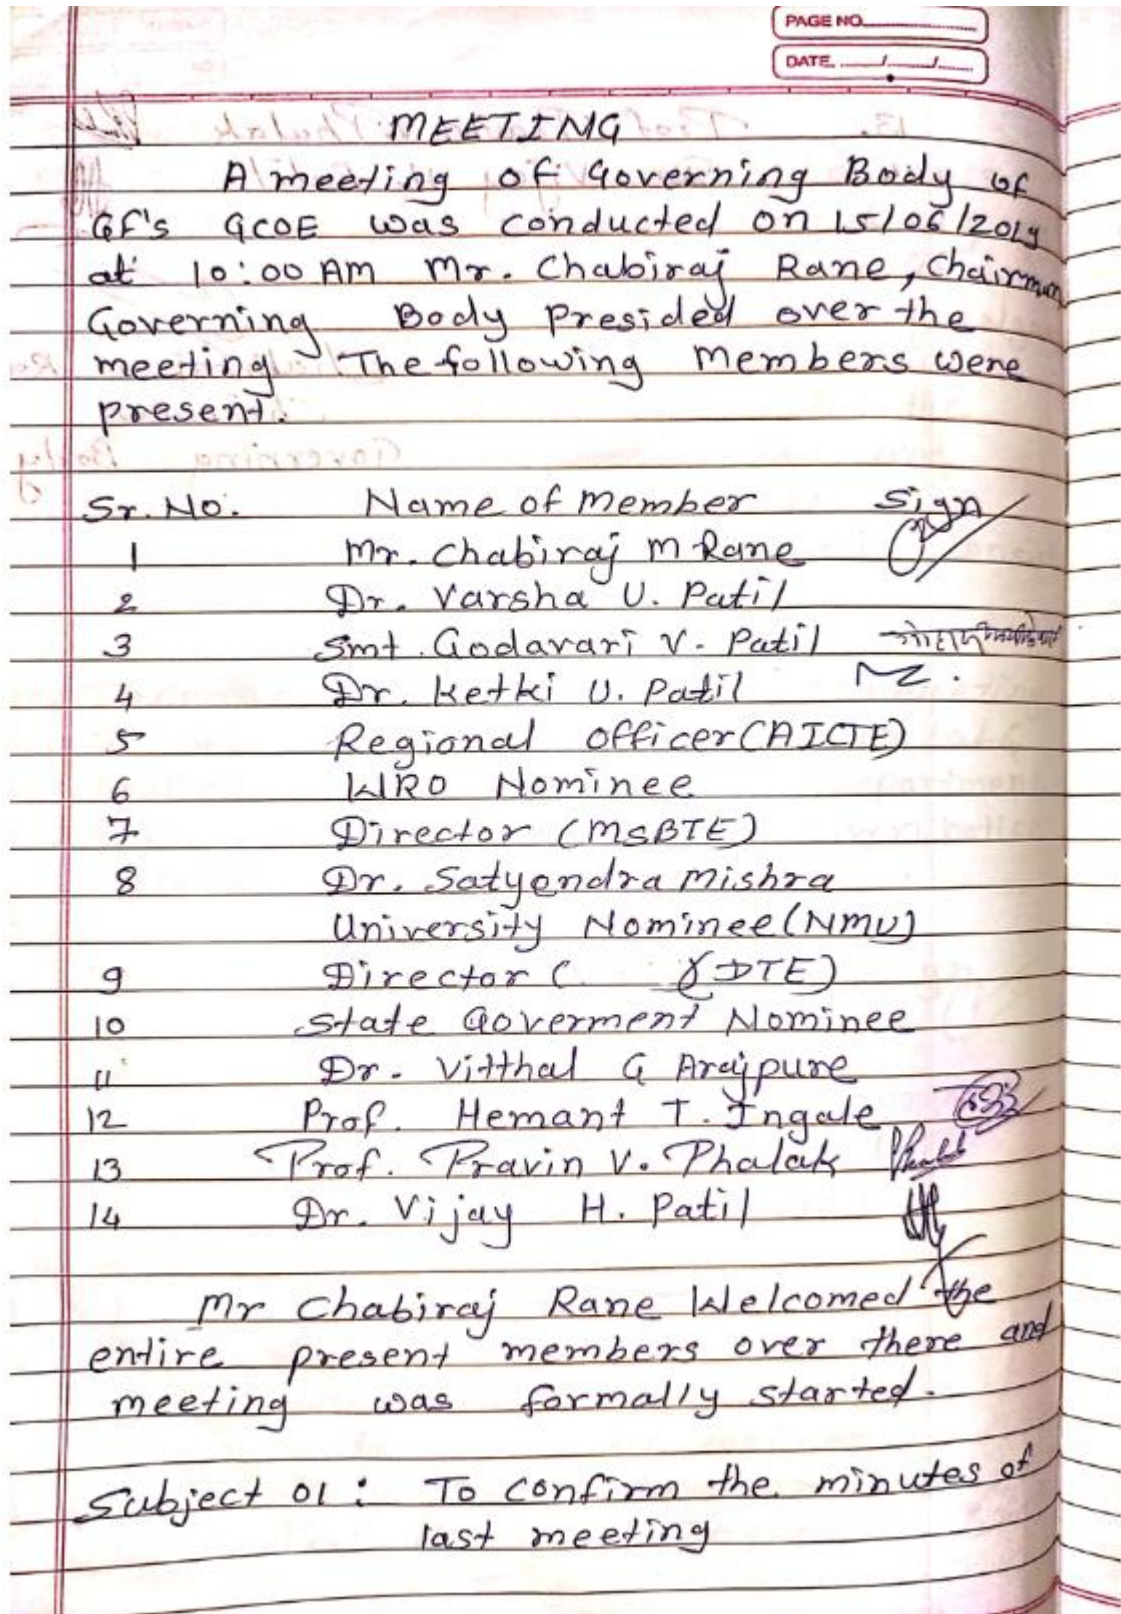 PAGE NO.
DATE. / /
MEETING
A meeting of Governing Body of
GF's GCOE was conducted on 15/06/2019
at 10:00 AM Mr. Chabiraj Rane, Chairman
Governing Body presided over the
meeting The following members were
present.
Sr. No. Name of member Sign
1 Mr. Chabiraj M Rane
2 Dr. Varsha U. Patil
3 Smt. Godavari V. Patil
4 Dr. Ketki U. Patil
5 Regional officer (AICTE)
6 WRO Nominee
7 Director (MSBTE)
8 Dr. Satyendra Mishra
University Nominee (NMU)
9 Director ( DTE)
10 State Goverment Nominee
11 Dr. Vitthal G Arajpure
12 Prof. Hemant T. Ingale
13 Prof. Pravin V. Phalak Phalak
14 Dr. Vijay H. Patil
Mr Chabiraj Rane Welcomed the
entire present members over there and
meeting was formally started.
Subject 01 : To confirm the minutes of
last meeting